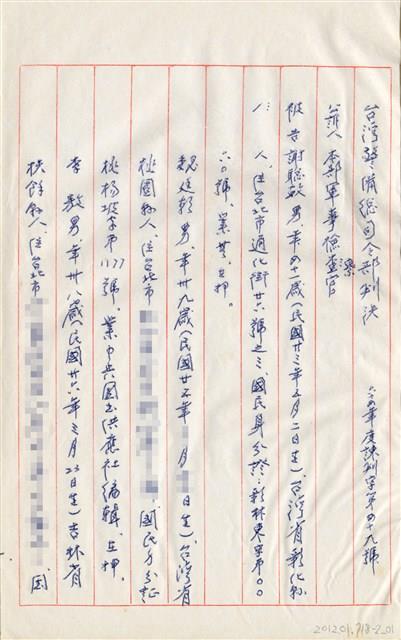 台灣警備總司令部判決
六十四年度諫判字第四十九號
公訴人 本部軍事檢察官
被告謝聰敏 男 年四十一歲（民國廿三年五月二日生）台灣省彰化縣
人，住台北市通化街廿六號之三，國民身分證：彰林東字第〇〇
六〇號，業書，在押。
魏廷朝 男，年卅九歲（民國廿五年 月 日生），台灣省
桃園縣人，住台北市 國民身分證
桃楊埔字第1177號。業中央圖書供應社編輯，在押。
李敖 男，年卅八歲（民國廿六年三月23日生）吉林省
扶餘縣人，住台北市 國
201201718-2_01